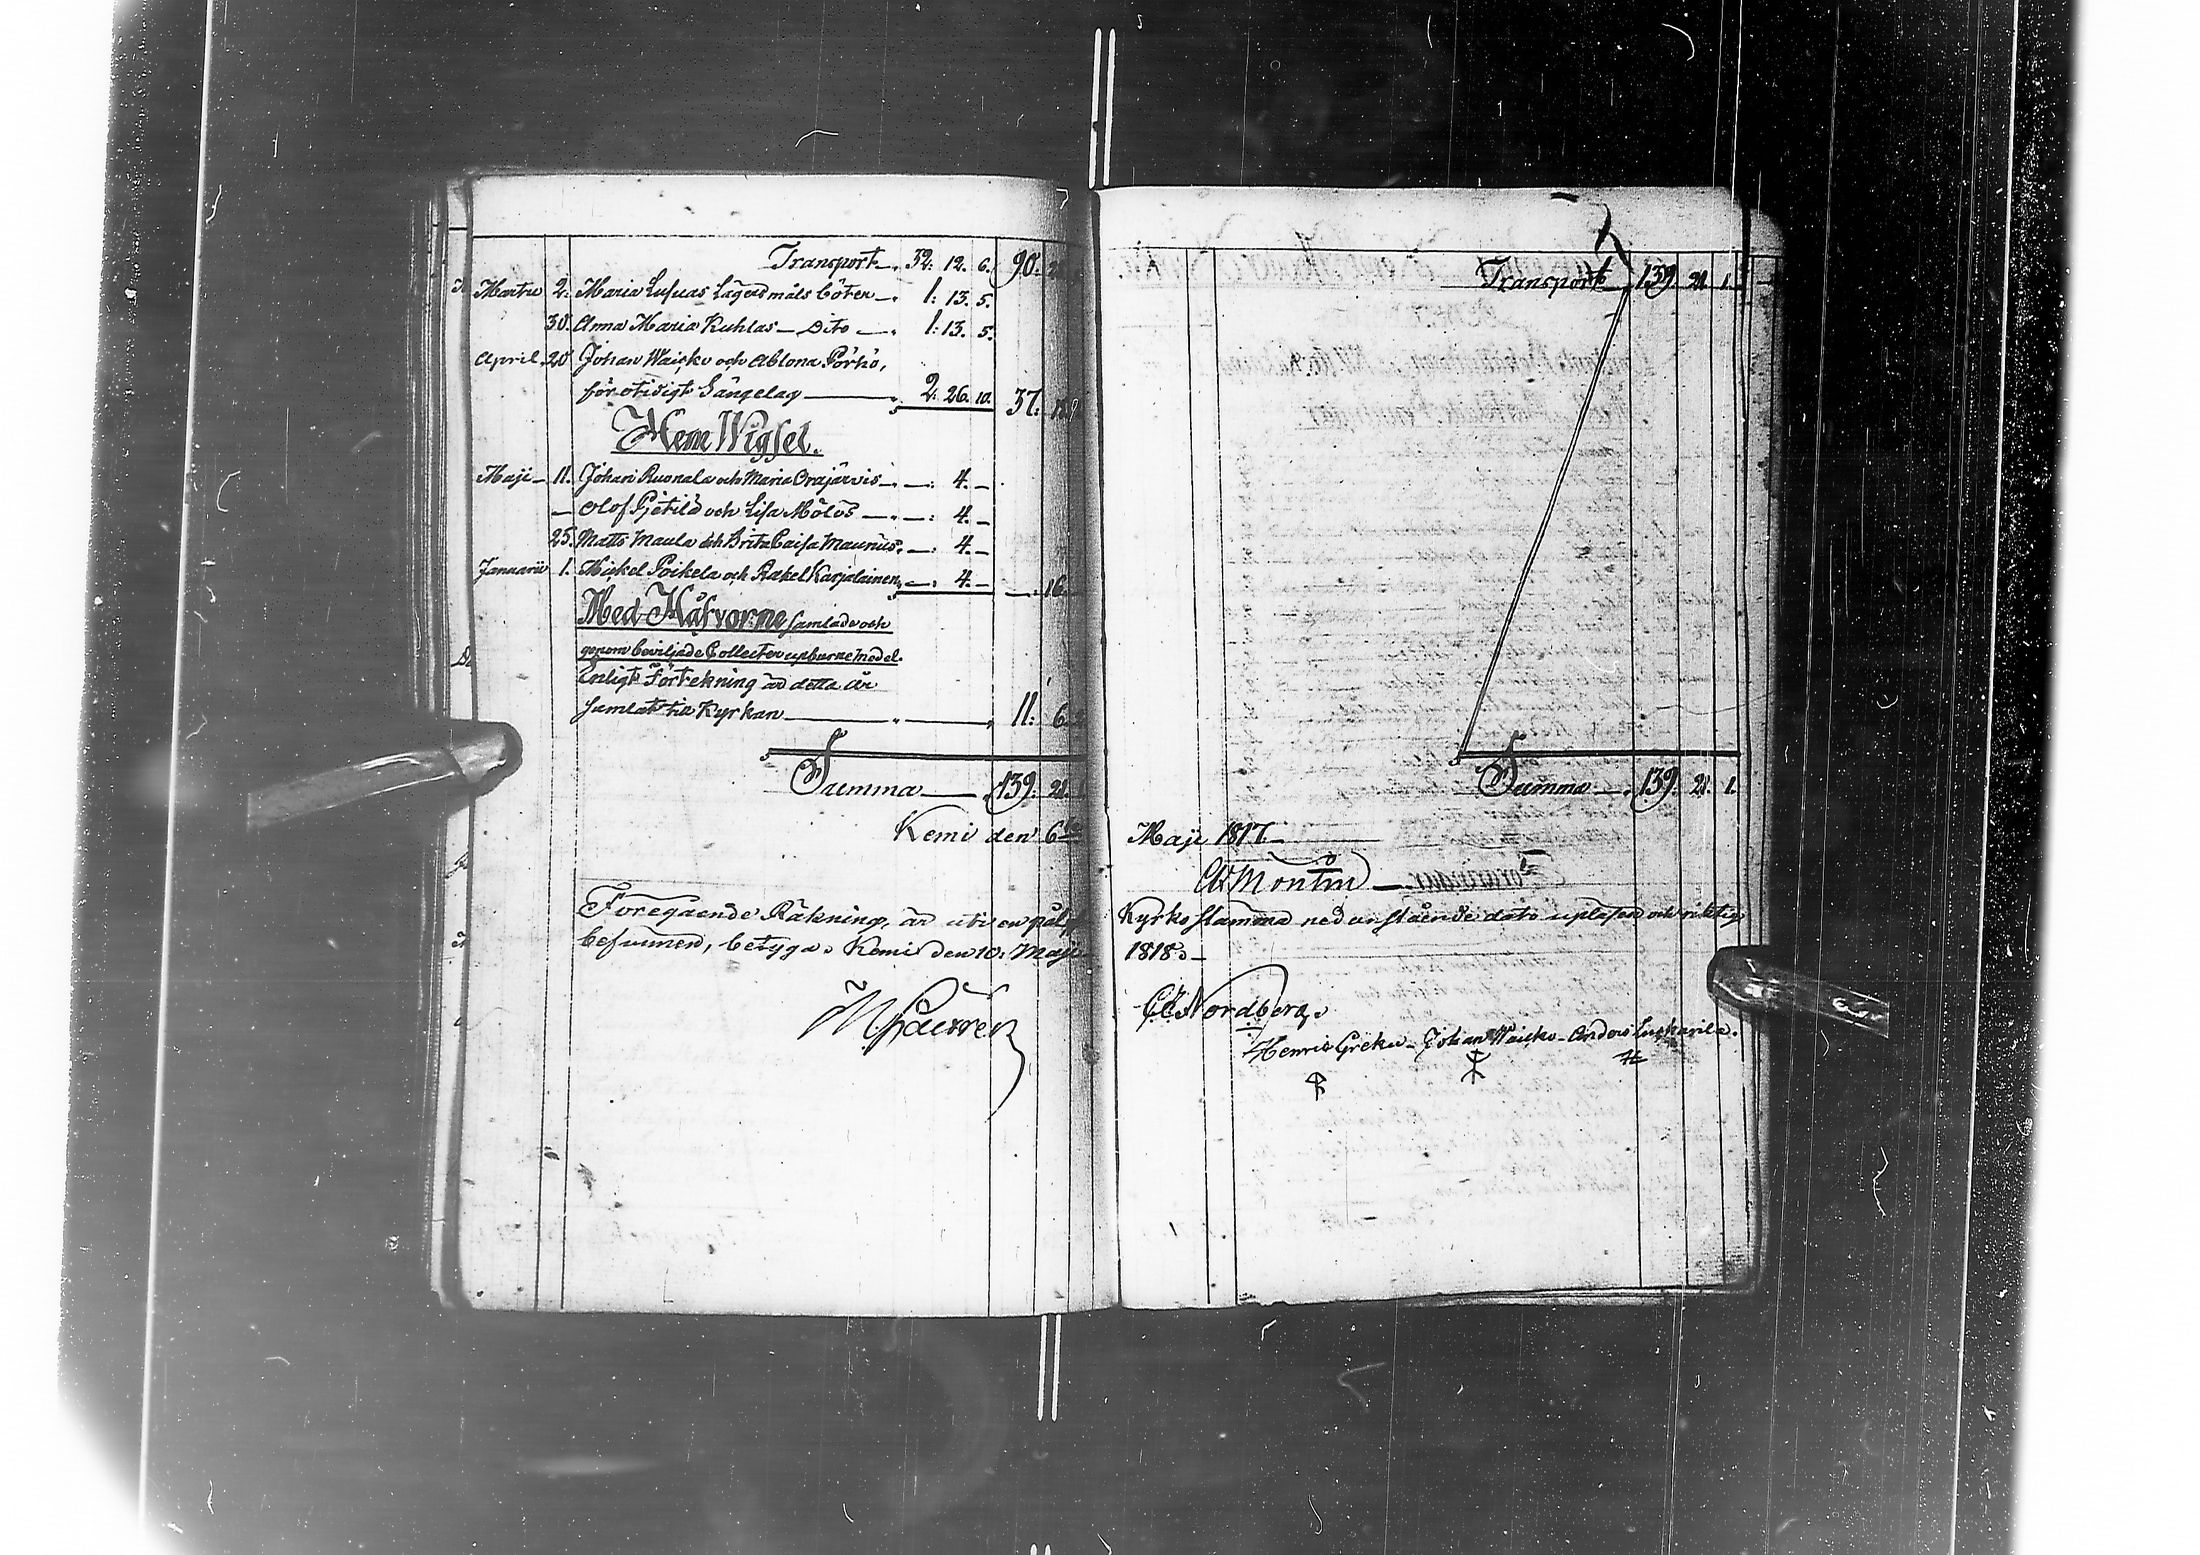 Transport 32. 12. 6. 90.
Martii 2. Maria Lusuas Lägersmåls böter 1. 13. 5.
30. Anna Maria Kuhlas Dito 1: 13. 5.
April. 20. Johan Waicko och Ablona Pörhö,
för otidigt Sängelag 2. 26. 10. 37:
Hem Wigsel.
Maji 11. Johan Ruonala och Maria Orajärvis 4.
Olof och Lisa 4.
25. Matts Maula och Brita Caisa Maunus 4.
Januarii 1. Mickel Poikela och Rakel Karjalainen 4. 16.
Med Håfvorne samlade och
genom beviljade Collecter upburne Medel.
Enligt Förtekning är detta år
samlat till Kyrkan 11: 6.
Summa 139. 21.
Kemi den 6
Föregående Räkning, är uti en
befunnen, betyga. Kemi den 10. Maji
Transport 139. 21. 1.
Summa 139. 21. 1.
Maji 1817.
Montin
Kyrkostämma nedanstående dato upläsen och riktig
1818.
Nordberg.
Henric Greku Johan Waicko Anders Luskarila.